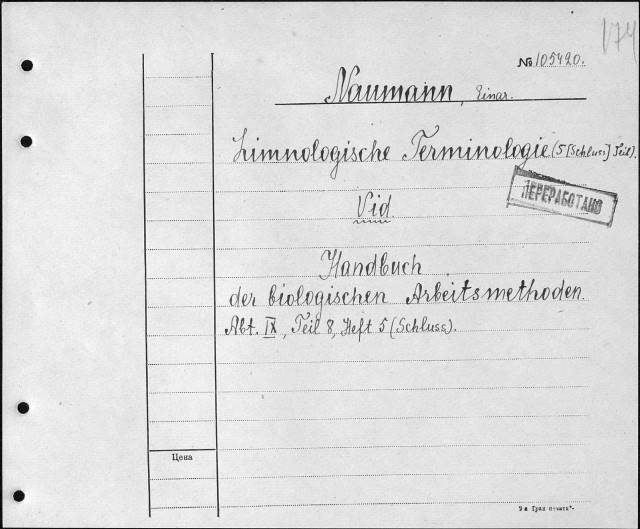 174
№ 105420.
Naumann, Einar.
Limnologische Terminologie (5 [Schluss] Teil).
ПЕРЕРАБОТАНО
Vid.
Handbuch
der biologischen Arbeitsmethoden.
Abt. IX, Teil 8, Heft 5 (Schluss).
Цена